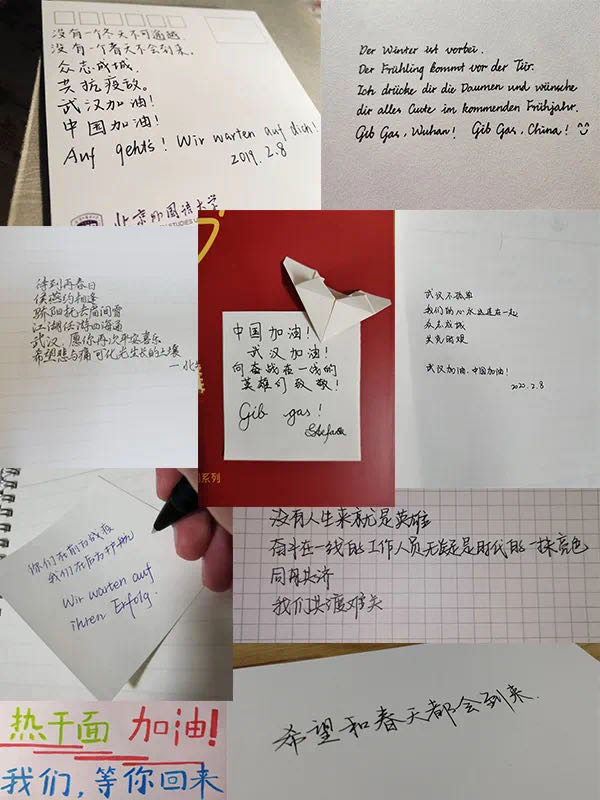 没有一个冬天不可逾越.
没有一个春天不会到来.
众志成城.
共抗疫敌.
武汉加油!
中国加油!
Auf gehts! Wir warten auf dich!
2019.2.8
北京外国语大学
STUDIES U
Der Winter ist vorbei.
Der Frühling kommt vor der Tür.
Ich drücke dir die Daumen und wünsche
dir alles Gute im kommenden Frühjahr.
Gib Gas, Wuhan! Gib Gas, China!
待到再春日
侯燕约相逢
骄阳托去眉间雪
江湖任游四海通
武汉,愿你再次平安喜乐
希望悲与痛可化光生长的土壤
中国加油!
武汉加油!
向奋战在一线的
英雄们致敬!
Gib gas!
系列
武汉不孤单
我们的心永远连在一起
众志成城
共克时艰
武汉加油.中国加油!
2020.2.8
你们在前方战役
我们在后方护航
Wir warten auf
ihren Erfolg.
没有人生来就是英雄
奋斗在一线的工作人员无疑是时代的一抹亮色
同舟共济
我们共渡难关
热干面 加油!
我们,等你回来
希望和春天都会到来.